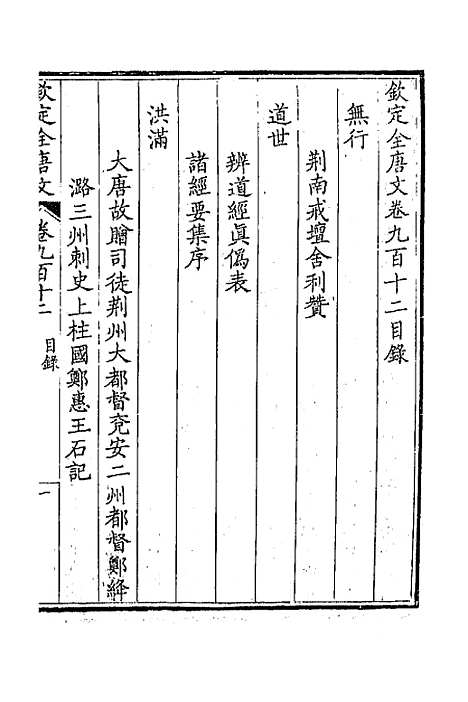 欽定全唐文卷九百十二目錄
無行
荆南戒壇舍利贊
道世
辨道經眞僞表
諸經要集序
洪滿
大唐故贈司徒荆州大都督兖安二州都督鄭絳
潞三州刺史上柱國鄭惠王石記
欽定全唐文 卷九百十二 目錄 一